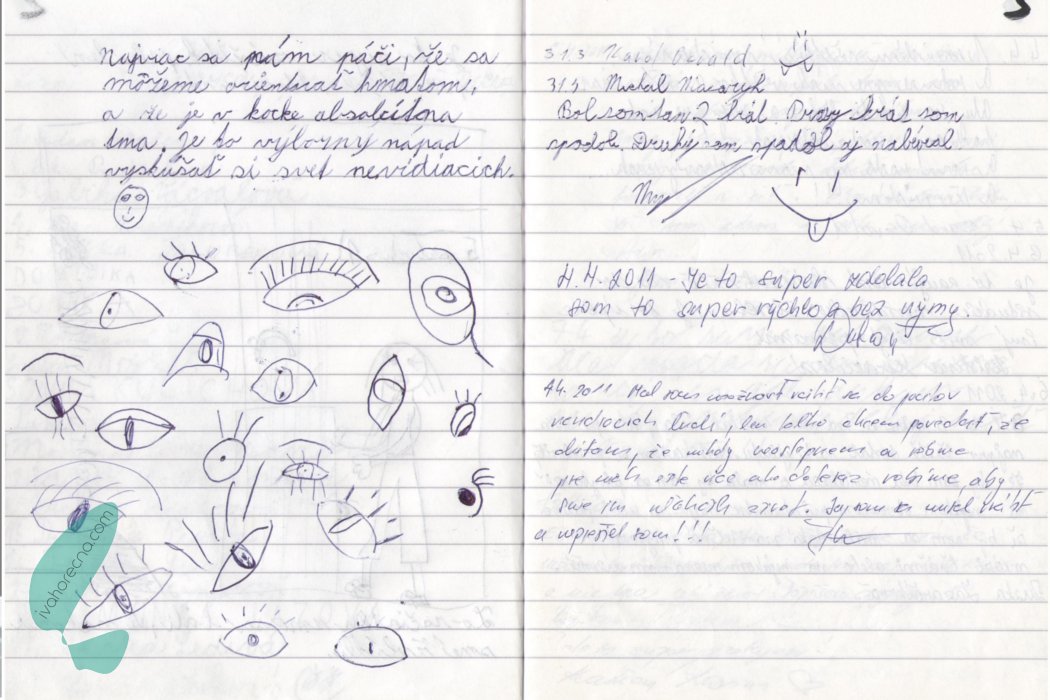 Najviac sa nám páči, že sa
môžeme orientovať hmatom,
a že je v kocke absolútna
tma. Je to výborný nápad
vyskúšať si svet nevidiacich.
ivahorecna.com
31.3.
31.3. Michal
Bol som tam 2 krát. Prvý krát som
spadol. Druhý som spadol aj nabúral
4.4.2011 - Je to super zdolala
som to super rýchlo a bez ujmy.
4.4.2011 Mal som možnosť vžiť sa do pocitov
nevidiacich ľudí, len toľko chcem povedať, že
dúfam, že nikdy neoslepnem a robme
pre nich ešte viac ako doteraz robíme, aby
sme im život.
a neprežil som!!!